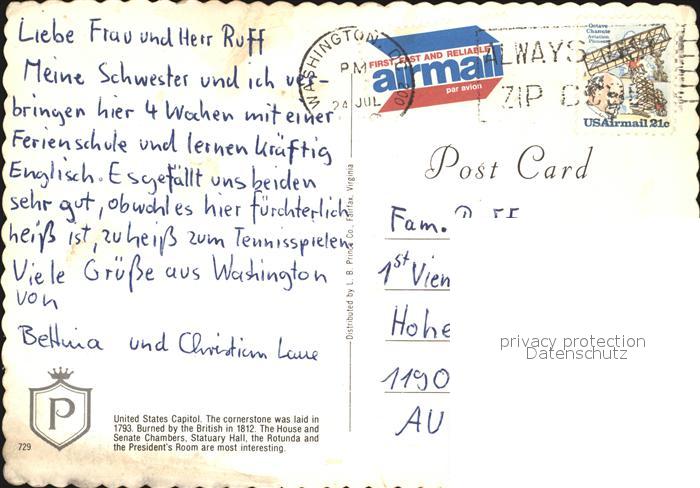 Liebe Frau und Herr Ruff
Meine Schwester und ich ver-
bringen hier 4 Wochen mit einer
Ferienschule und lernen kräftig
Englisch. Es gefällt uns beiden
sehr gut, obwohl es hier fürchterlich
heiß ist, zu heiß zum Tennisspielen.
Viele Grüße aus Washington
von
Bettina und Christiane
P
729
United States Capitol. The cornerstone was laid in
1793. Burned by the British in 1812. The House and
Senate Chambers, Statuary Hall, the Rotunda and
the President's Room are most interesting.
Distributed by L. B. Prince Co., Fairfax, Virginia
WASHINGTON, DC
PM
24 JUL
FIRST FAST AND RELIABLE
airmail
par avion
ALWAYS
ZIP
Octave
Chanute
Aviation
Pioneer
USAirmail 21c
Post Card
Fam.
1st Vien
Hohe
1190
AU
privacy protection
Datenschutz